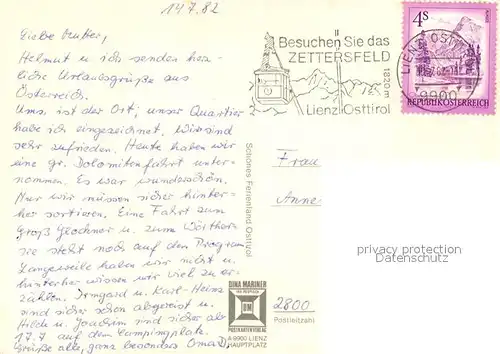 14.7.82
Liebe Mutter,
Helmut u ich senden herz-
liche Urlaubsgrüße aus
Österreich.
Uns, ist der Ort, unser Quartier
habe ich eingezeichnet. Wir sind
sehr zufrieden. Heute haben wir
eine gr. Dolomitenfahrt unter-
nommen. Es war wunderschön.
Nur wir müssen sicher hinter-
her sortieren. Eine Fahrt zum
Groß Glockner u. zum Wörther-
see steht noch auf den Program
Langeweile haben wir nicht u.
hinterher wissen wir viel zu er-
zählen. Irmgard u. Karl-Heinz
sind sicher schon abgereist u.
Hilde u. Joachim sind sicher ab
17.7 auf dem Campingplatz.
Grüße alle, ganz besonders Oma
Besuchen Sie das
ZETTERSFELD
1820 m
Lienz/Osttirol
4S
LIENZ, OSTTIROL
9900
REPUBLIK ÖSTERREICH
Schönes Ferienland Osttirol
Frau
Anne
privacy protection
Datenschutz
DINA MARINER
DM
POSTKARTENVERLAG
A-9900 LIENZ
HAUPTPLATZ
2800
Postleitzahl